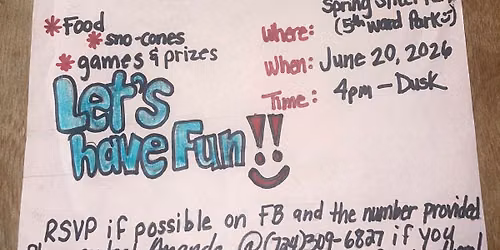 * Food
* sno-cones
* games & prizes
Let's
have Fun!!
Spring
(5th ward Park)
Where:
When: June 20, 2026
Time: 4pm - Dusk
RSVP if possible on FB and the number provided
@ (724)309-6827 if you